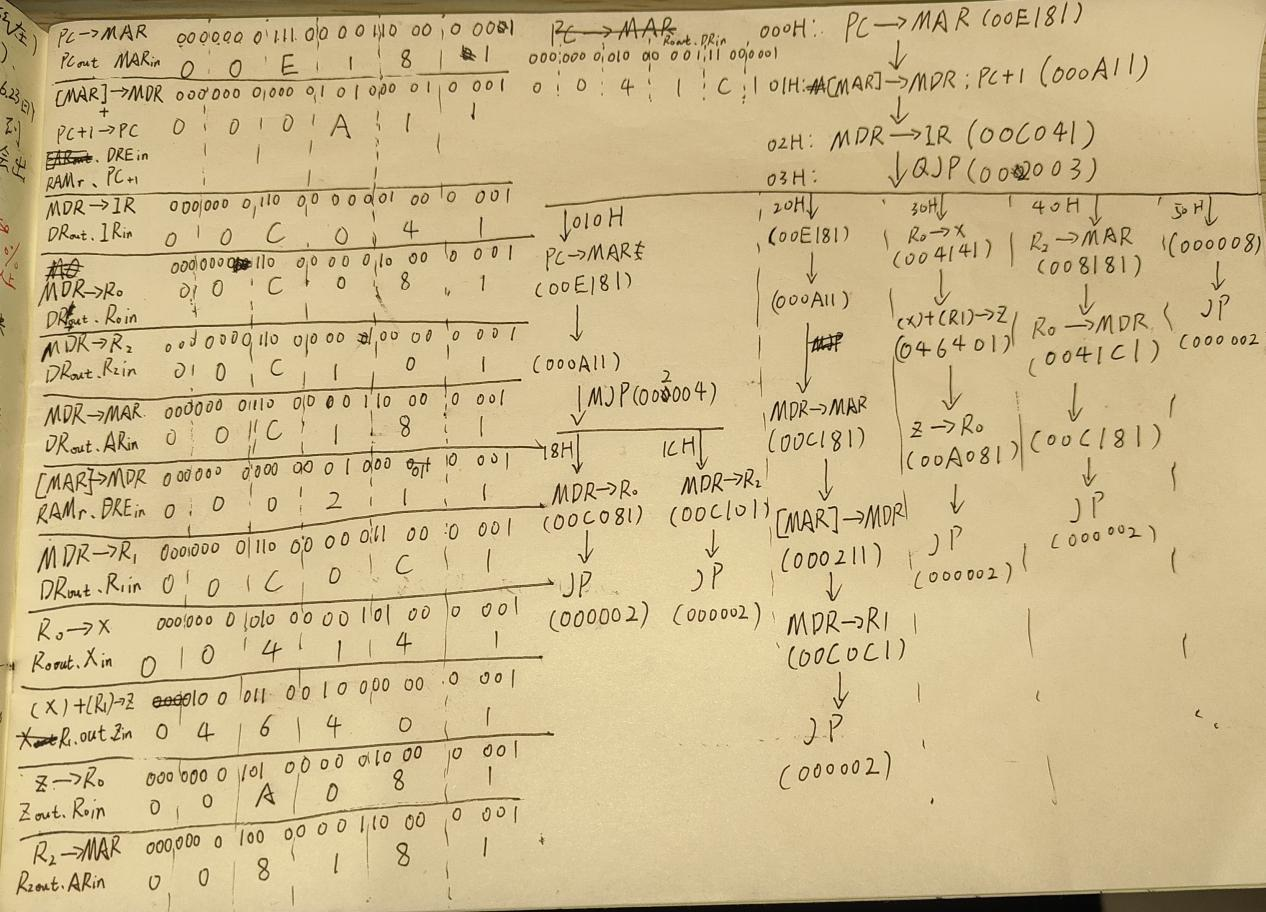 PC→MAR 000000 0111 0 0 00110 00 0 0001
PCout MARin 0 0 E 1 8 1
[MAR]→MDR 000000 0,000 0,1 0 1 0 00 01 0 001
+
PC+1→PC 0 0 0 A 1 1
DREin
RAMr. PC+1
MDR→IR 000000 0,110 00 00 0 01 00 0 001
DRout.IRin 0 0 C 0 4 1
MDR→R0 0 0 C 0 8 1
DRout.R0in
MDR→R2 000 0000 110 0 000 0 100 0 0 001
DRout.R2in 0 0 C 1 0 1
MDR→MAR 000000 0110 00 00 110 00 0 001
DRout.ARin 0 0 C 1 8 1
[MAR]→MDR 000000 0,000 00 0 1 000 01 0 001
RAMr.DREin 0 0 0 2 1 1
MDR→R1 000000 0110 00 00 011 00 0 001
DRout.R1in 0 0 C 0 C 1
R0→X 000000 0 010 00 00 101 00 0 001
R0out.Xin 0 0 4 1 4 1
(X)+(R1)→Z 10 0 011 00 10 000 00 0 001
R1.out Zin 0 4 6 4 0 1
Z→R0 000000 0 101 00 00 010 00 0 001
Zout.R0in 0 0 A 0 8 1
R2→MAR 000000 0 100 00 00 110 00 0 001
R2out.ARin 0 0 8 1 8 1
PC→MAR
R0out.DRin
000000 0010 00 00 111 00 0001
0 0 4 1 C 1
000H: PC→MAR (00E181)
01H: [MAR]→MDR; PC+1 (000A11)
02H: MDR→IR (00C041)
03H: QJP (002003)
010H
PC→MAR
(00E181)
(000A11)
MJP(002004)
18H 1CH
MDR→R0 MDR→R2
(00C081) (00C101)
JP JP
(000002) (000002)
20H
(00E181)
(000A11)
MDR→MAR
(00C181)
[MAR]→MDR
(000211)
MDR→R1
(00C0C1)
JP
(000002)
30H
R0→X
(004141)
(X)+(R1)→Z
(046401)
Z→R0
(00A081)
JP
(000002)
40H
R2→MAR
(008181)
R0→MDR
(0041C1)
(00C181)
JP
(000002)
50H
(000008)
JP
(000002